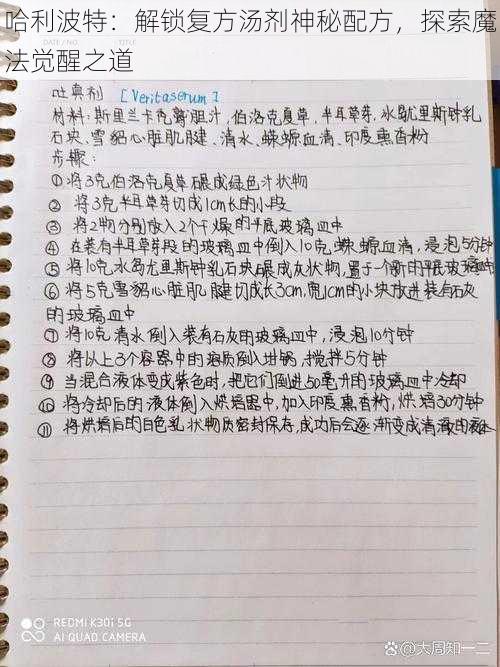 哈利波特：解锁复方汤剂神秘配方，探索魔
法觉醒之道
吐真剂 [Veritaserum]
材料：斯里兰卡 胆汁，伯洛克夏草，半耳草芽，水 尤里斯钟乳
石块，雪貂心脏肌腱，清水，蝾螈血清，印度熏香粉
步骤：
①将3克伯洛克夏草碾成绿色汁状物
② 将3克半耳草芽切成1cm长的小段
③ 将2物分别放入2个干燥的平底玻璃皿中
④ 在装有半耳草芽段的玻璃皿中倒入10克蝾螈血清，浸泡5分钟
⑤ 将10克水 尤里斯钟乳石块碾成灰状物，置于一个新的平底玻璃皿中
⑥ 将5克雪貂心脏肌腱切成长3cm，宽1cm的小块放进装有石灰
的玻璃皿中
⑦ 将10克清水倒入装有石灰的玻璃皿中，浸泡10分钟
⑧ 将以上3个容器中的溶质倒入坩锅，搅拌5分钟
⑨ 当混合液体变成紫色时，把它们倒进50毫升的玻璃皿中冷却
⑩ 将冷却后的液体倒入烘焙器中，加入印度熏香粉，烘焙30分钟
⑪ 将烘焙后的白色乳状物质密封保存，成功后会逐渐变成清澈的液体
REDMI K30i 5G
AI QUAD CAMERA
@大周知一二